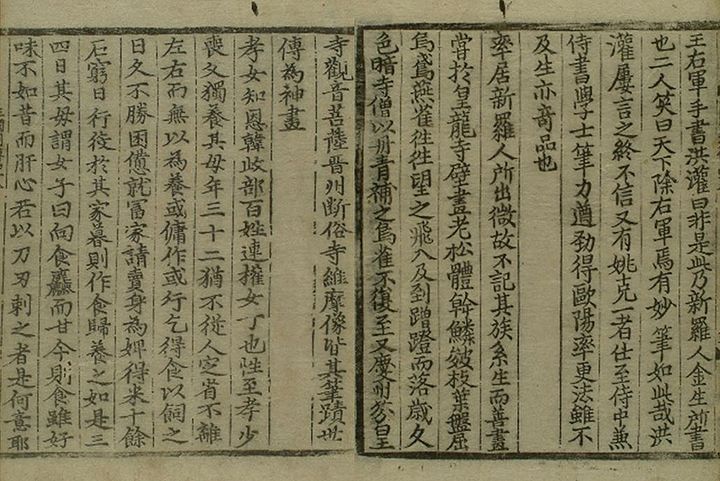 王右軍手書洪灌曰非是此乃新羅人金生所書
也二人笑曰天下除右軍焉有妙筆如此哉洪
灌屢言之終不信又有姚克一者仕至侍中兼
侍書學士筆力遒勁得歐陽率更法雖不
及生亦竒品也
率居新羅人所出微故不記其族系生而善畫
甞於皇龍寺壁畫老松體幹鱗皴枝葉盤屈
烏鳶燕雀徃徃望之飛入及到蹭蹬而落歳久
色暗寺僧以丹青補之烏雀不復至又慶州芬皇
寺觀音菩薩晋州断俗寺維摩像皆其筆蹟世
傳為神畫
孝女知恩韓歧部百姓連權女子也性至孝少
喪父獨養其母年三十二猶不從人定省不離
左右而無以為養或傭作或行乞得食以飼之
日久不勝困憊就冨家請賣身為婢得米十餘
石窮日行役於其家暮則作食歸養之如是三
四日其母謂女子曰向食麤而甘今則食雖好
味不如昔而肝心若以刀刃刺之者是何意耶